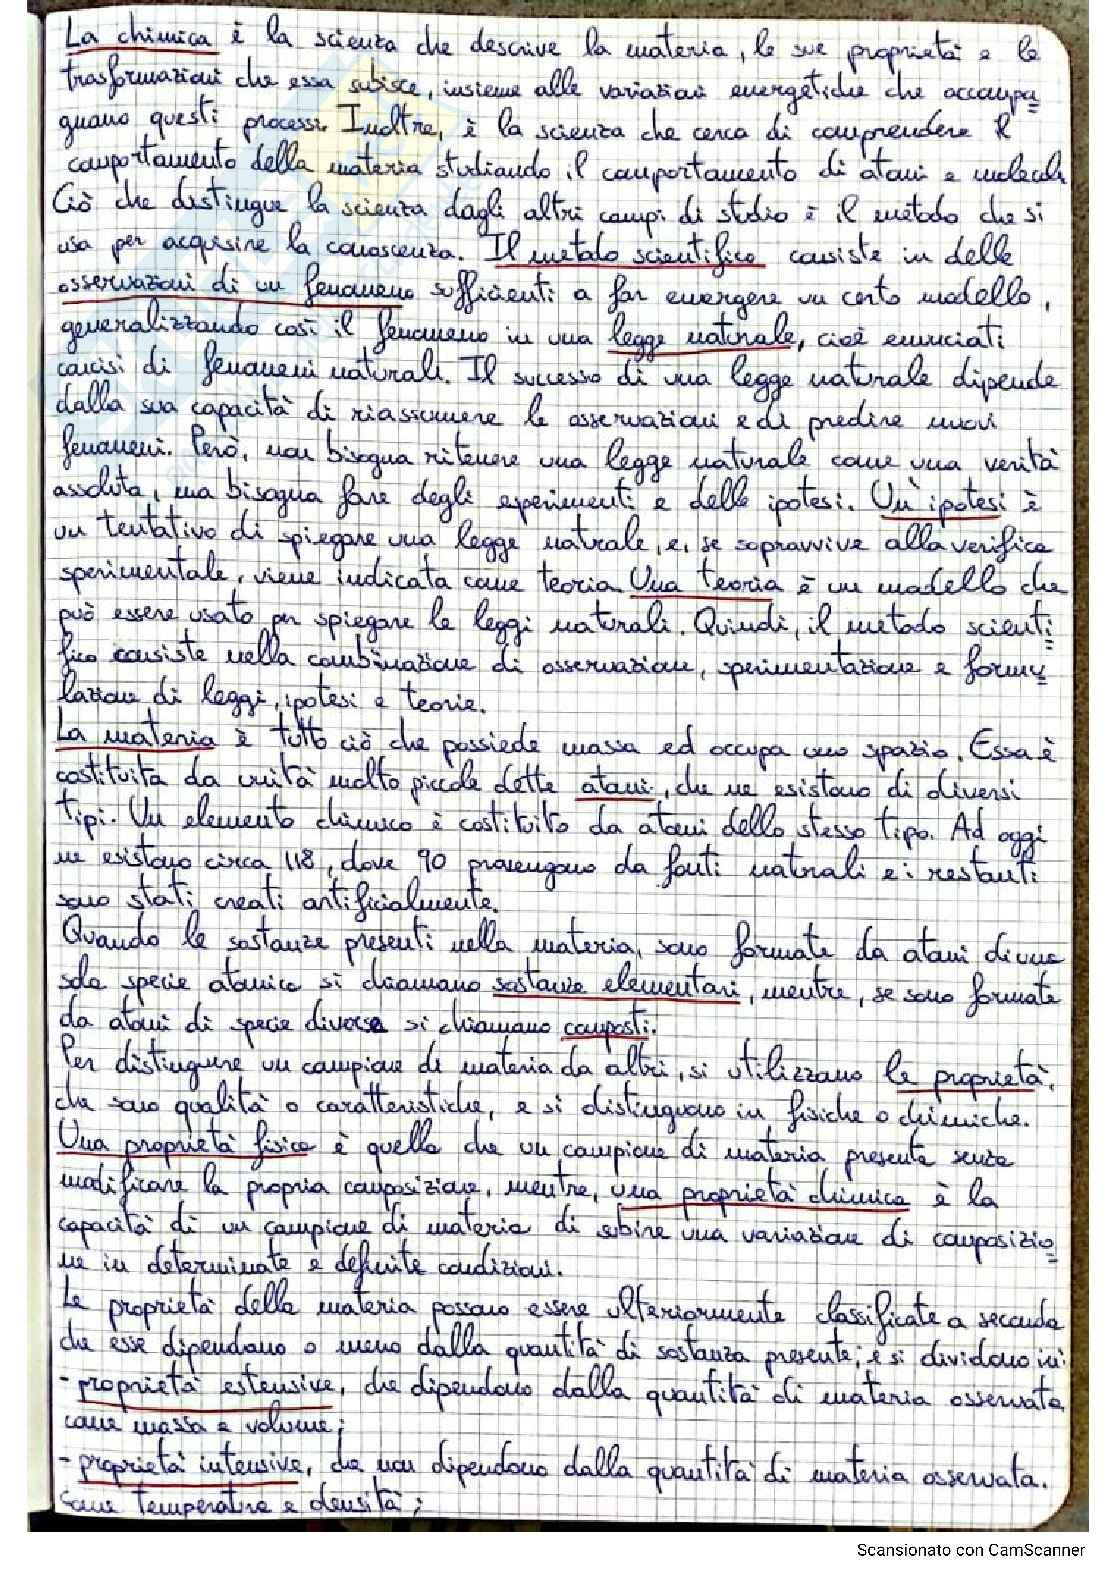 La chimica è la scienza che descrive la materia, le sue proprietà e le
trasformazioni che essa subisce, insieme alle variazioni energetiche che accompa=
gnano questi processi. Inoltre, è la scienza che cerca di comprendere il
comportamento della materia studiando il comportamento di atomi e molecole
Ciò che distingue la scienza dagli altri campi di studio è il metodo che si
usa per acquisire la conoscenza. Il metodo scientifico consiste in delle
osservazioni di un fenomeno sufficienti a far emergere un certo modello,
generalizzando così il fenomeno in una legge naturale, cioè enunciati
concisi di fenomeni naturali. Il successo di una legge naturale dipende
dalla sua capacità di riassumere le osservazioni e di predire nuovi
fenomeni. Però, non bisogna ritenere una legge naturale come una verità
assoluta, ma bisogna fare degli esperimenti e delle ipotesi. Un'ipotesi è
un tentativo di spiegare una legge naturale, e, se sopravvive alla verifica
sperimentale, viene indicata come teoria. Una teoria è un modello che
può essere usato per spiegare le leggi naturali. Quindi, il metodo scienti=
fico consiste nella combinazione di osservazione, sperimentazione e formu=
lazione di leggi, ipotesi e teorie.
La materia è tutto ciò che possiede massa ed occupa uno spazio. Essa è
costituita da unità molto piccole dette atomi, che ne esistono di diversi
tipi. Un elemento chimico è costituito da atomi dello stesso tipo. Ad oggi
ne esistono circa 118, dove 90 provengono da fonti naturali e i restanti
sono stati creati artificialmente.
Quando le sostanze presenti nella materia, sono formate da atomi di una
sola specie atomica si chiamano sostanze elementari, mentre, se sono formate
da atomi di specie diversa si chiamano composti.
Per distinguere un campione di materia da altri, si utilizzano le proprietà,
che sono qualità o caratteristiche, e si distinguono in fisiche o chimiche.
Una proprietà fisica è quella che un campione di materia presenta senza
modificare la propria composizione, mentre, una proprietà chimica è la
capacità di un campione di materia di subire una variazione di composizio=
ne in determinate e definite condizioni.
Le proprietà della materia possono essere ulteriormente classificate a seconda
che esse dipendano o meno dalla quantità di sostanza presente, e si dividono in:
- proprietà estensive, che dipendono dalla quantità di materia osservata
come massa e volume;
- proprietà intensive, che non dipendono dalla quantità di materia osservata.
come temperatura e densità;
Scansionato con CamScanner